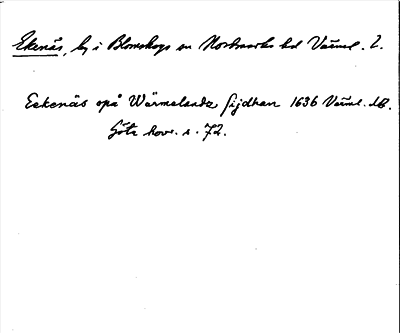 Ekenäs, by i Blomskogs sn Nordmarks hd Värml. l.
Eekenäs opå Wärmelandz sijdhan 1636 Värml. db.
Göta hovr. s. 72.